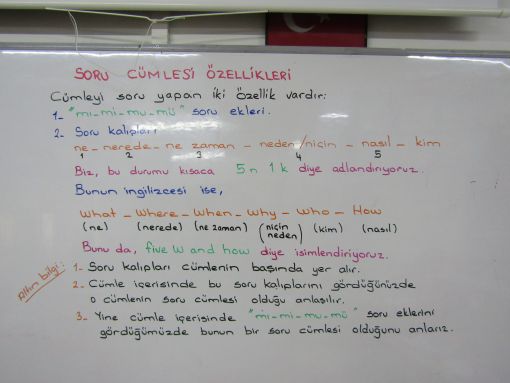 SORU CÜMLESİ ÖZELLİKLERİ
Cümleyi soru yapan iki özellik vardır:
1- "mı-mi-mu-mü" soru ekleri.
2- Soru kalıpları
ne - nerede - ne zaman - neden/niçin - nasıl - kim
1 2 3 4 5
Biz, bu durumu kısaca 5n 1k diye adlandırıyoruz.
Bunun ingilizcesi ise,
What - Where - When - Why - Who - How
(ne) (nerede) (ne zaman) (niçin neden) (kim) (nasıl)
Bunu da, five w and how diye isimlendiriyoruz.
Altın bilgi:
1- Soru kalıpları cümlenin başında yer alır.
2- Cümle içerisinde bu soru kalıplarını gördüğünüzde
o cümlenin soru cümlesi olduğu anlaşılır.
3- Yine cümle içerisinde "mı-mi-mu-mü" soru eklerini
gördüğümüzde bunun bir soru cümlesi olduğunu anlarız.